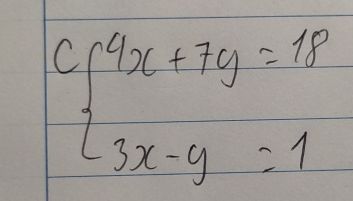 C { 4x + 7y = 18
3x - y = 1